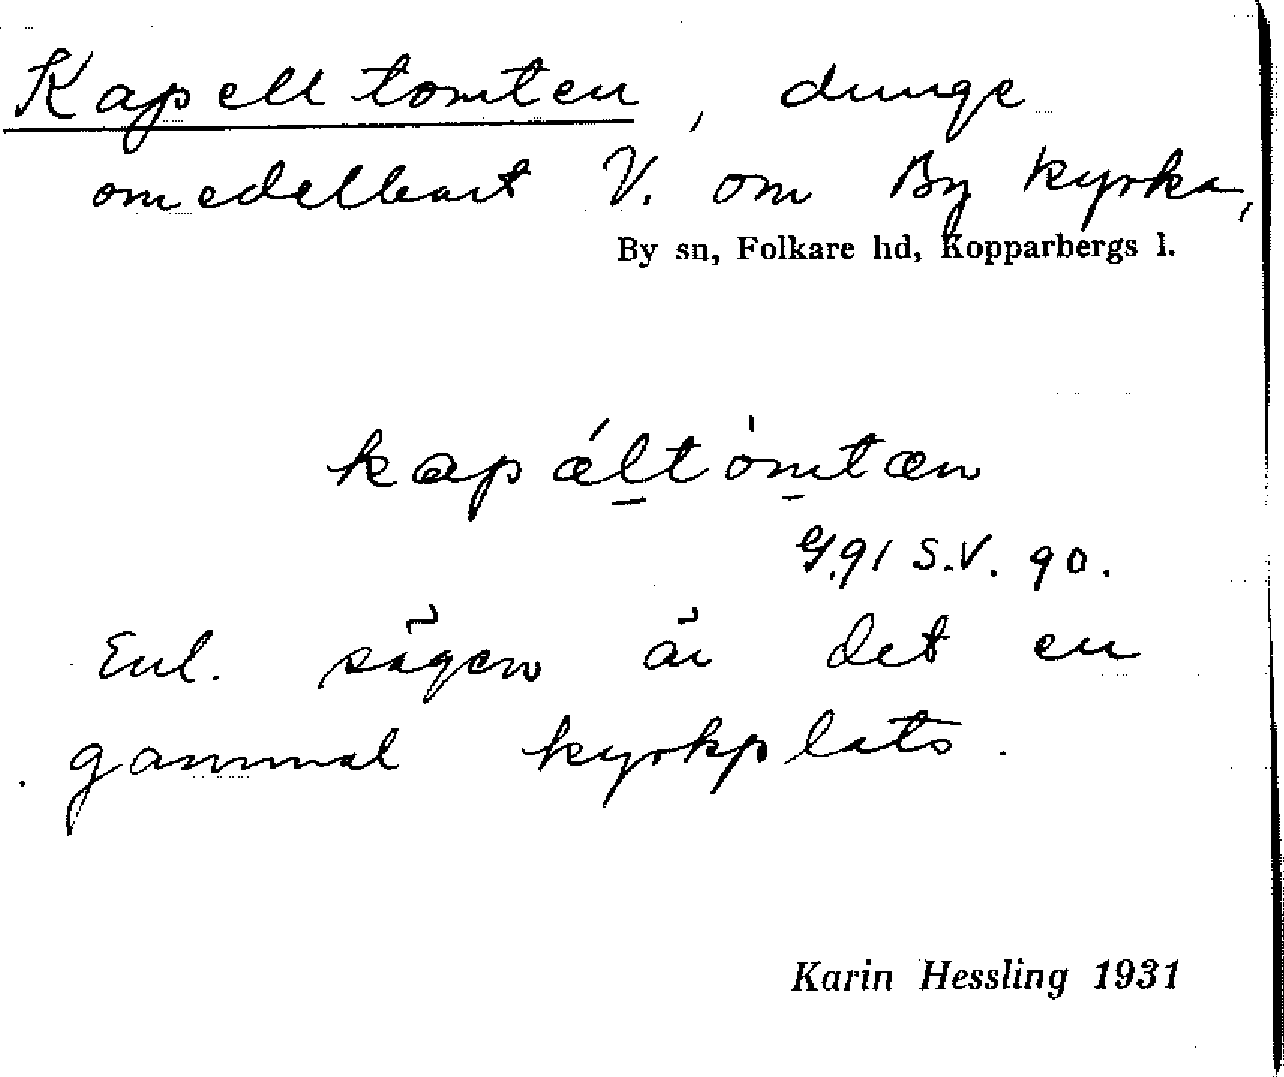 Kapelltomten, dunge
omedelbart V. om By kyrka,
By sn, Folkare hd, Kopparbergs l.
kapǽltòmtæn
G.91 S.V. 90.
Enl. sägen är det en
gammal kyrkplats.
Karin Hessling 1931